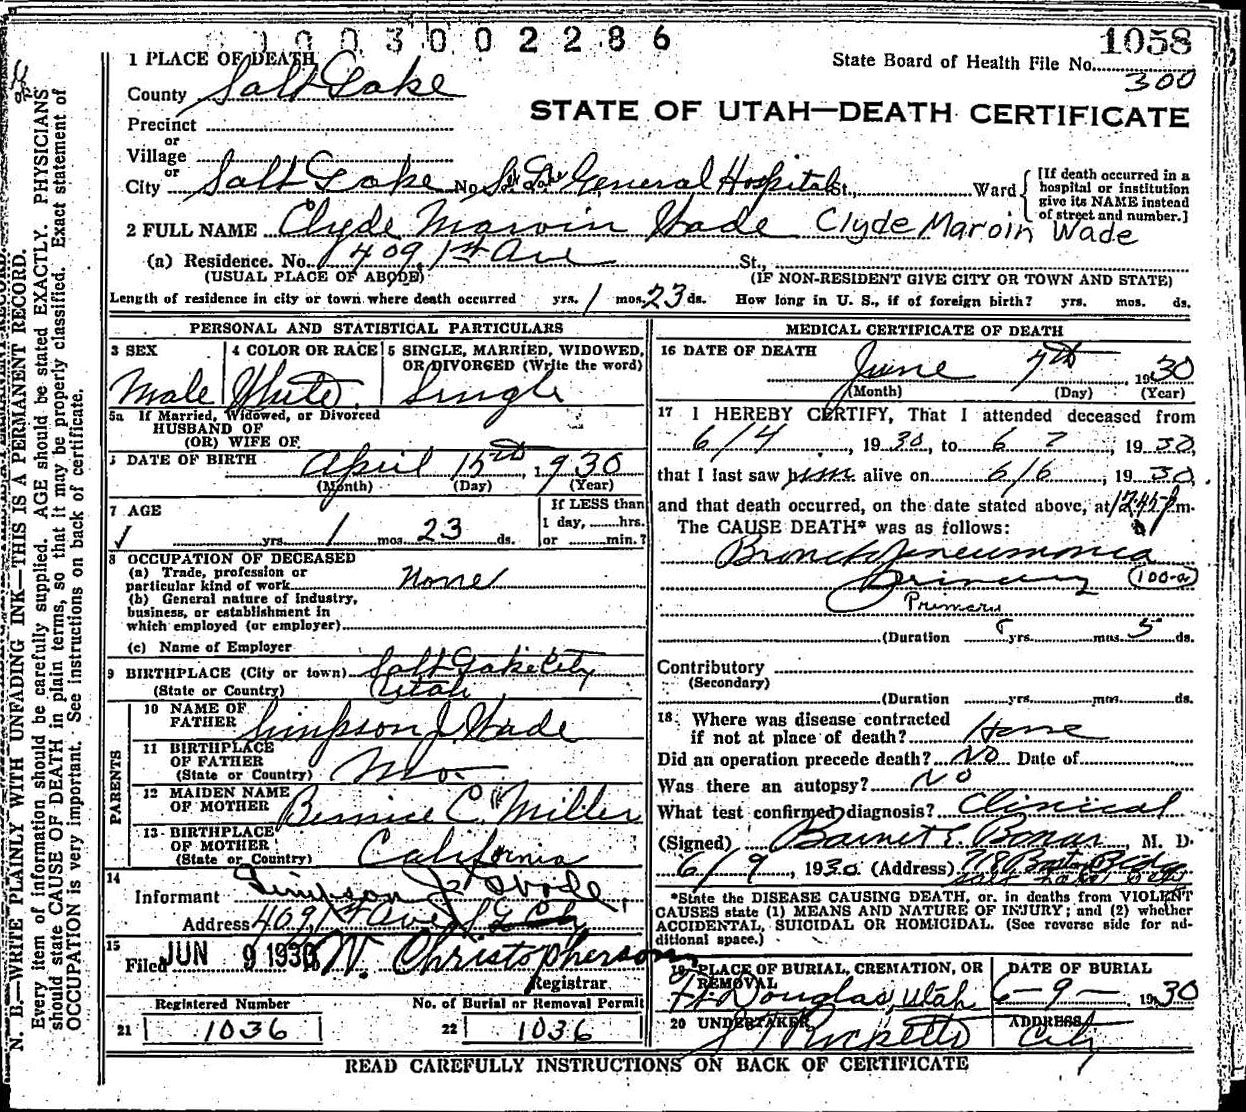 1003002286
1058
1 PLACE OF DEATH
State Board of Health File No.
300
County Salt Lake
STATE OF UTAH—DEATH CERTIFICATE
Precinct
or
Village
or
City Salt Lake No. Salt Lake General Hospital St., Ward
[If death occurred in a hospital or institution give its NAME instead of street and number.]
2 FULL NAME Clyde Marvin Wade Clyde Maroin Wade
(a) Residence. No. 409 1st Ave St.,
(USUAL PLACE OF ABODE) (IF NON-RESIDENT GIVE CITY OR TOWN AND STATE)
Length of residence in city or town where death occurred yrs. 1 mos. 23 ds. How long in U. S., if of foreign birth? yrs. mos. ds.
PERSONAL AND STATISTICAL PARTICULARS
3 SEX 4 COLOR OR RACE 5 SINGLE, MARRIED, WIDOWED, OR DIVORCED (Write the word)
Male White Single
5a If Married, Widowed, or Divorced
HUSBAND OF
(OR) WIFE OF
DATE OF BIRTH April 15th 1930
(Month) (Day) (Year)
7 AGE If LESS than
1 day, hrs.
yrs. 1 mos. 23 ds. or min.?
8 OCCUPATION OF DECEASED
(a) Trade, profession or
particular kind of work None
(b) General nature of industry,
business, or establishment in
which employed (or employer)
(c) Name of Employer
9 BIRTHPLACE (City or town) Salt Lake City
(State or Country) Utah
PARENTS
10 NAME OF FATHER Simpson J. Wade
11 BIRTHPLACE OF FATHER (State or Country) Mo.
12 MAIDEN NAME OF MOTHER Bernice C. Miller
13 BIRTHPLACE OF MOTHER (State or Country) California
14
Informant Simpson J. Wade
Address 409 1st Ave
15
Filed JUN 9 1930 N. Christopherson
Registrar
Registered Number No. of Burial or Removal Permit
21 1036 22 1036
MEDICAL CERTIFICATE OF DEATH
16 DATE OF DEATH June 7th 1930
(Month) (Day) (Year)
17 I HEREBY CERTIFY, That I attended deceased from
6/4, 1930, to 6 7, 1930,
that I last saw him alive on 6/6, 1930,
and that death occurred, on the date stated above, at 12:45 p m.
The CAUSE DEATH* was as follows:
Bronchopneumonia
Primary 100-a
Primary
(Duration yrs. mos. 5 ds.
Contributory
(Secondary)
(Duration yrs. mos. ds.
18. Where was disease contracted
if not at place of death? Home
Did an operation precede death? No Date of
Was there an autopsy? NO
What test confirmed diagnosis? Clinical
(Signed) Barnet E. Bonar, M. D.
6/9, 1930 (Address) 718 Boston Bldg
Salt Lake City
*State the DISEASE CAUSING DEATH, or. in deaths from VIOLENT
CAUSES state (1) MEANS AND NATURE OF INJURY; and (2) whether
ACCIDENTAL, SUICIDAL OR HOMICIDAL. (See reverse side for ad-
ditional space.)
19 PLACE OF BURIAL, CREMATION, OR REMOVAL DATE OF BURIAL
Ft. Douglas, Utah 6-9- 1930
20 UNDERTAKER ADDRESS
City
READ CAREFULLY INSTRUCTIONS ON BACK OF CERTIFICATE
N. B.—WRITE PLAINLY WITH UNFADING INK—THIS IS A PERMANENT RECORD.
Every item of information should be carefully supplied. AGE should be stated EXACTLY. PHYSICIANS
should state CAUSE OF DEATH in plain terms, so that it may be properly classified. Exact statement of
OCCUPATION is very important. See instructions on back of certificate.